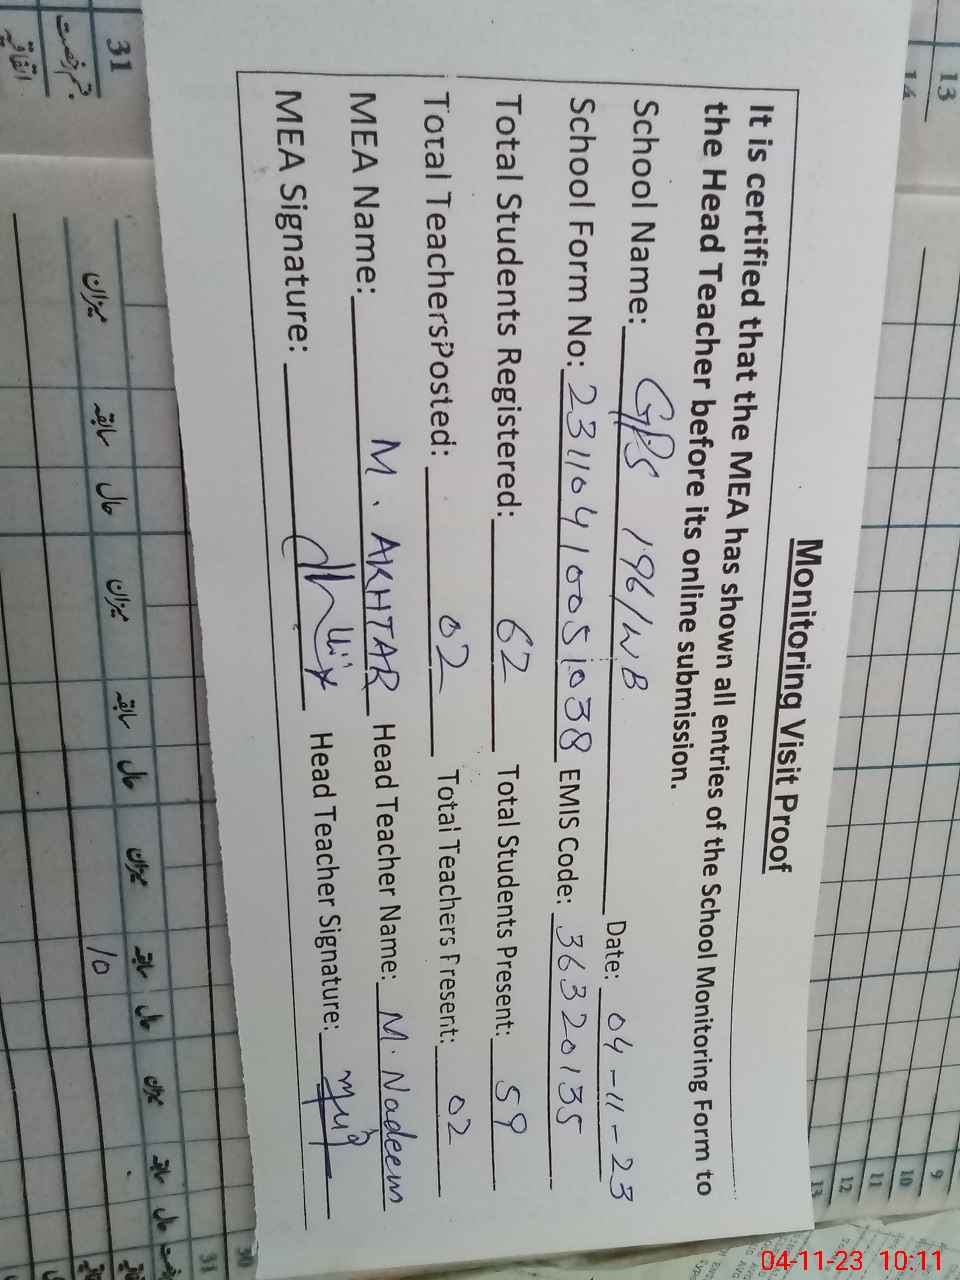 Monitoring Visit Proof
It is certified that the MEA has shown all entries of the School Monitoring Form to
the Head Teacher before its online submission.
School Name: GPS 196/WB Date: 04-11-23
School Form No: 23110410051038 EMIS Code: 36320135
Total Students Registered: 62 Total Students Present: 59
Total Teachers Posted: 02 Total Teachers Present: 02
MEA Name: M. AKHTAR Head Teacher Name: M. Nadeem
MEA Signature: Head Teacher Signature:
13
14
9
10
11
12
13
31
میزان
سابقہ حال
میزان
سابقہ حال
میزان
سابقہ حال
میزان
سابقہ حال
10
30
31
04-11-23 10:11